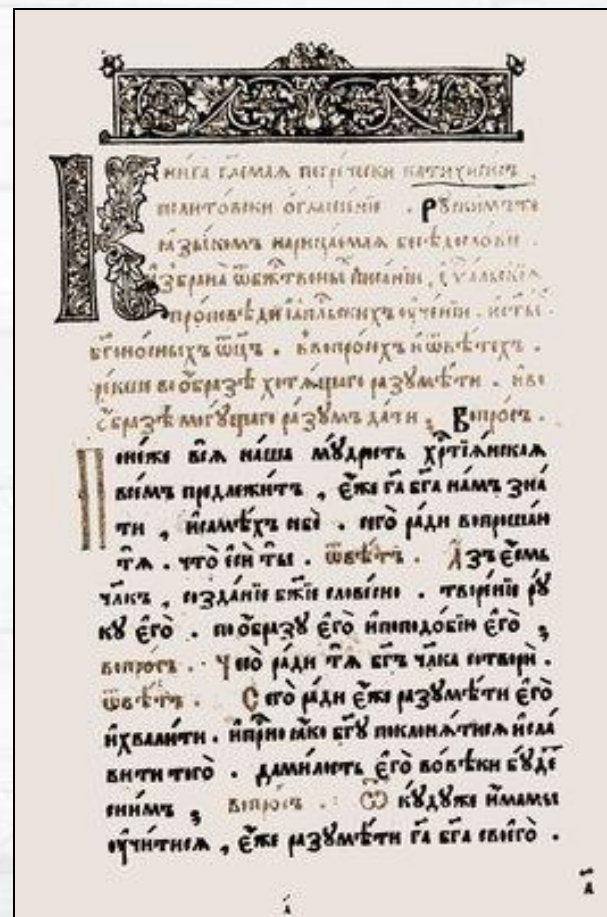 Книга гл҃емая погречески катихисисъ,
политовски ѡглашенїе . Рꙋскимъже
ꙗзыкомъ нарицаемая бесѣдословїе .
избрана ѿ бж҃твеныⷯ писанїи,
проповѣди
бг҃оносныхъ ѿц҃ъ . в вопросѣхъ и ѿвѣтѣхъ .
рекше во ѻбразѣ хотѧщаго разꙋмѣти . и во
ѻбразѣ могꙋщаго разꙋмъ дати . Вопросъ .
Понеже всѧ наша мꙋдрость хрⷭ҇тїѧнскаѧ
всѣмъ предлежитъ , є҆же гд҃а бг҃а намъ зна
ти , и самѣхъ себѐ . сего̀ ради вопрошаю
тѧ . что̀ є҆сѝ ты̀ . ѿвѣтъ . А҆зъ є҆смь
чл҃къ , созданїе бж҃їе словесно . творенїе рꙋ
кꙋ є҆го̀ . по ѻ҆бразꙋ є҆го̀ и҆ по подобїю є҆го̀ ,
вопросъ . Чесо̀ ради тѧ бг҃ъ чл҃ка сотворѝ .
ѿвѣтъ . Сего̀ ради є҆же разꙋмѣти є҆го̀
и҆ хвалити . и҆ присно бг҃ꙋ поклонѧтисѧ и҆ сла
вити того̀ . да милость є҆го̀ во вѣки бꙋдеⷮ
с ним̀ъ , вопросъ .: Ѿкꙋдꙋже и҆мамы
ᲂу҆читисѧ , є҆же разꙋмѣти гд҃а бг҃а своего̀ .
а҃